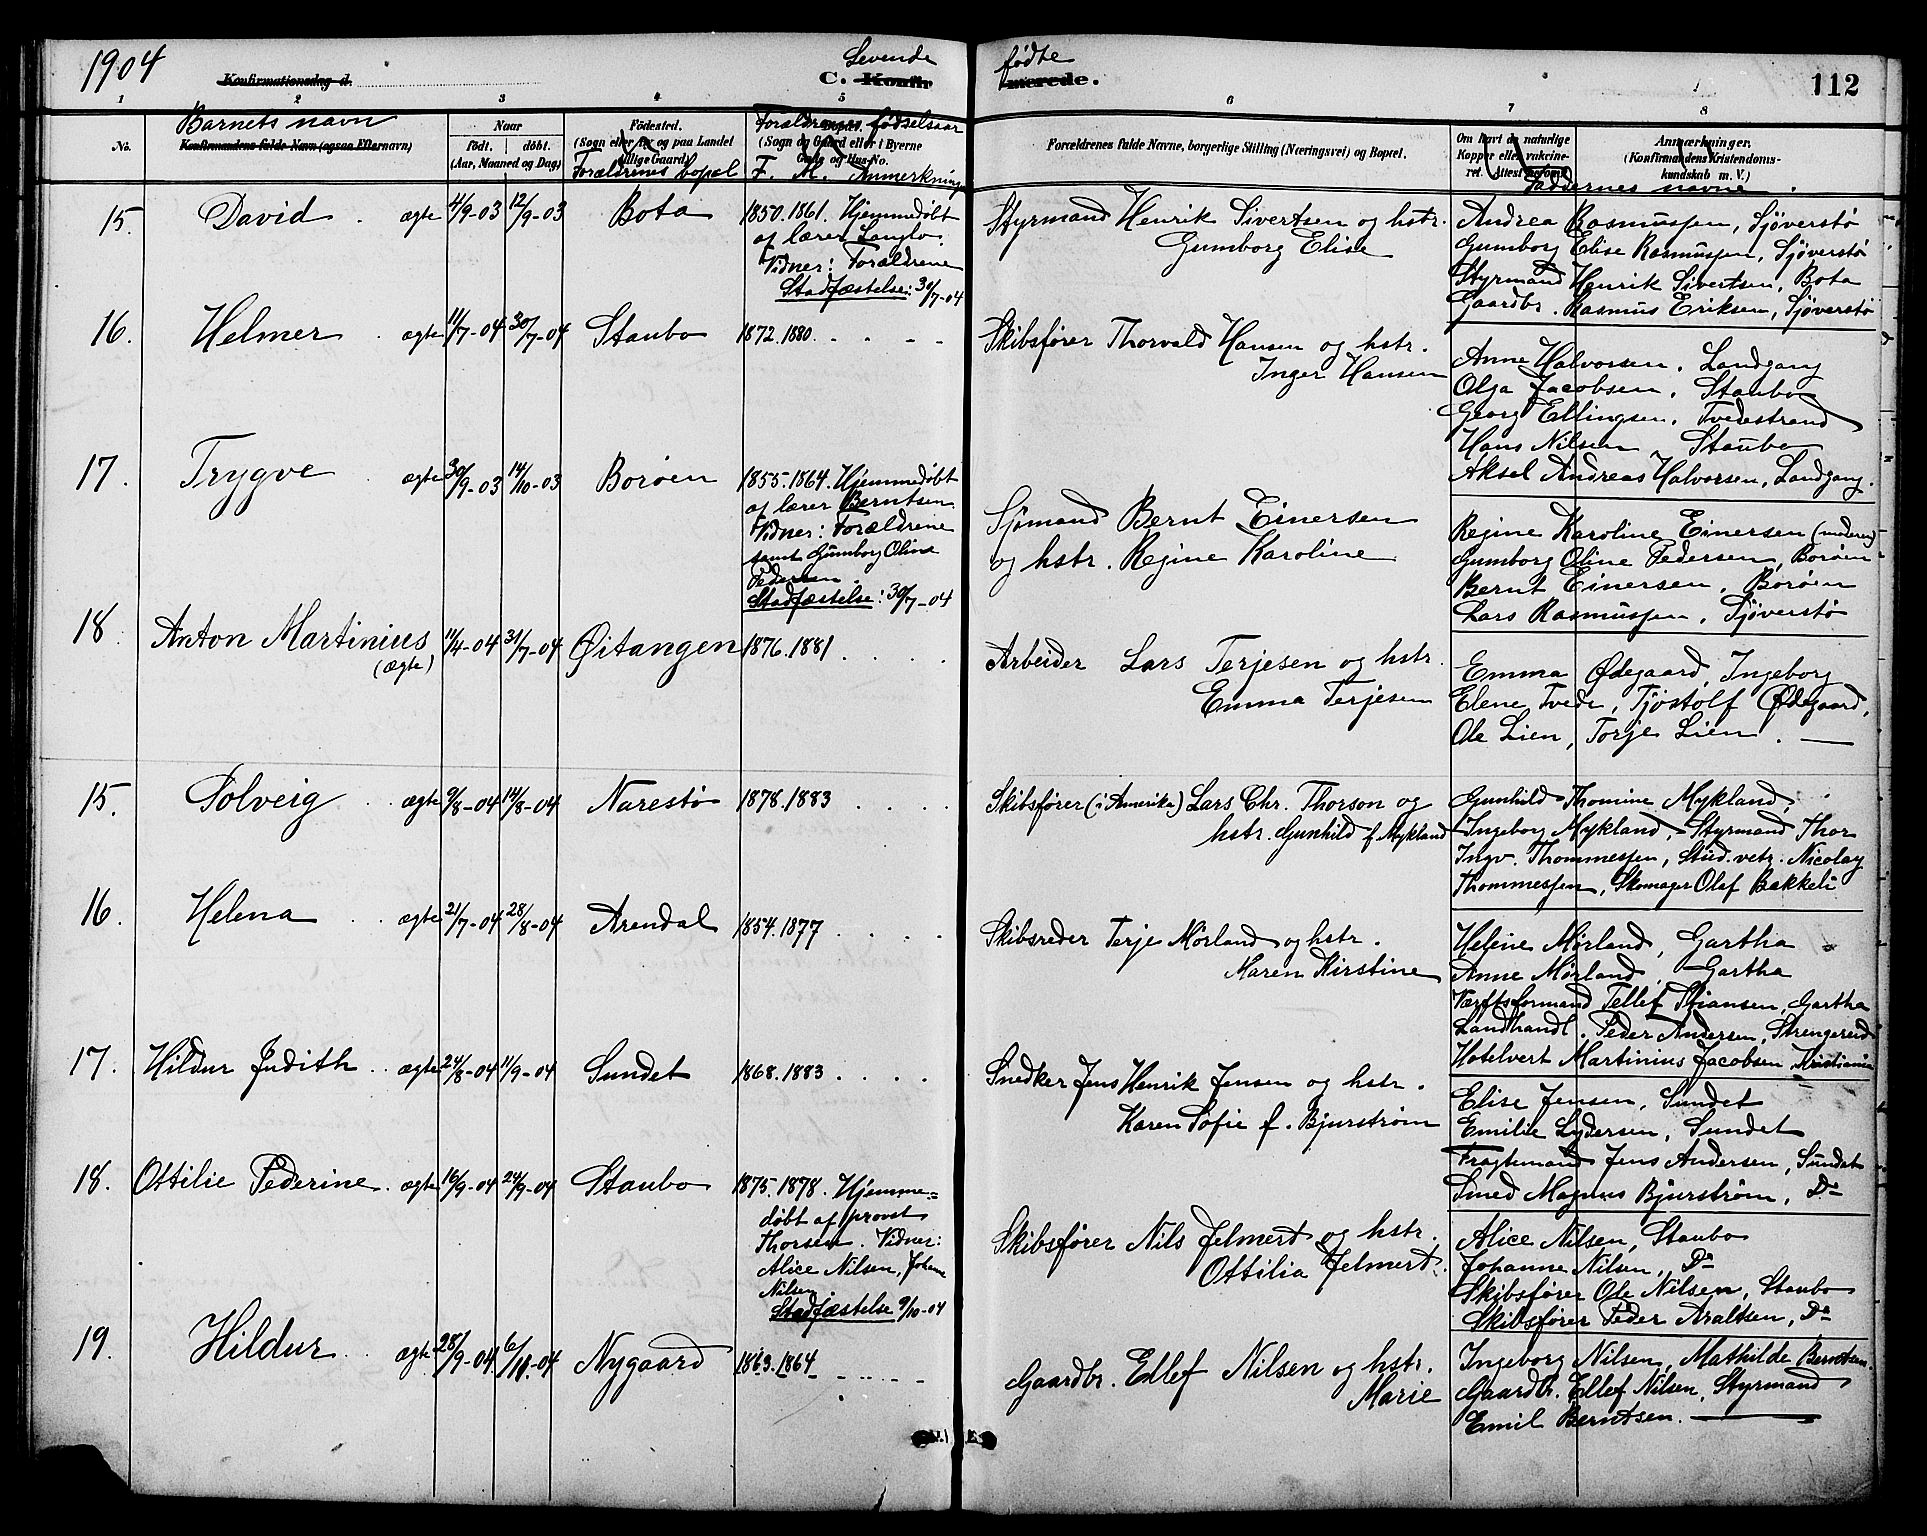 1904
Konfirmationsdag d.
Levende
C. Konfir
fødte
merede.
112
1 2 3 4 5 6 7 8
No.
Barnets navn
Konfirmandens fulde Navn (ogsaa Efternavn)
Naar
født. døbt.
(Aar, Maaned og Dag)
Fødested.
(Sogn eller By og paa Landet
tillige Gaard)
Forældrenes bopæl
Forældrenes fødselsaar
(Sogn og Gaard eller i Byerne
Gade og Hus-No.
F. M. Anmerkninger
Forældrenes fulde Navne, borgerlige Stilling (Næringsvei) og Bopæl.
Om havt de naturlige
Kopper eller vakcine-
ret.
Anmærkninger.
(Konfirmandens Kristendoms-
kundskab m. V.)
Faddernes navne
15. David ægte 4/9-03 12/9-03 Bota 1850. 1861. Hjemmedøbt
af lærer Langlo.
Vidner: Forældrene
Stadfæstelse: 30/7-04
Styrmand Henrik Sivertsen og hstr.
Gumborg Elise
Andrea Rasmussen, Sjøverstø
Gumborg Elise Rasmussen, Sjøverstø
Styrmand Henrik Sivertsen, Bota
Gaardbr. Rasmus Eriksen, Sjøverstø
16. Helmer ægte 11/7-04 30/7-04 Staubo 1872. 1880.
Skibsfører Thorvald Hansen og hstr.
Inger Hansen
Anne Halvorsen, Landgang
Olga Jacobsen, Staubo
Georg Ellingsen, Tvedestrand
Hans Nilsen Staubo
Aksel Andreas Halvorsen, Landgang.
17. Trygve ægte 30/9-03 14/10-03 Borøen 1855. 1864. Hjemmedøbt
af lærer Berntsen
Vidner: Forældrene
samt Gumborg Oline
Pedersen.
Stadfæstelse: 30/7-04
Sjømand Bernt Einersen
og hstr. Regine Karoline
Regine Karoline Einersen (moderen)
Gumborg Oline Pedersen, Borøen
Bernt Einersen, Borøen
Lars Rasmussen, Sjøverstø
18. Anton Martinius (ægte) 11/4-04 31/7-04 Øitangen 1876. 1881
Arbeider Lars Terjesen og hstr.
Emma Terjesen
Emma Ødegaard, Ingeborg
Elene Tvede, Tjøstolf Ødegaard,
Ole Lien, Torje Lien.
15. Solveig ægte 9/8-04 14/8-04 Narestø 1878. 1883
Skibsfører (i Amerika) Lars Chr. Thorson og
hstr. Gunhild f. Mykland
Gunhild Thomine Mykland,
Ingeborg Mykland, Styrmand Thor
Ingv. Thommessen, Stud. vetr. Nicolay
Thommessen, Skomager Olaf Bakkeli
16. Helena ægte 21/7-04 28/8-04 Arendal 1854. 1877
Skibsreder Terje Mørland og hstr.
Maren Kirstine
Heline Mørland, Gartha
Anne Mørland, Gartha
Værftsformand Tellef Stiansen, Gartha
Landhandl. Peder Andersen, Strengereid
Hotelvert Martinius Jacobsen, Kristiania
17. Hildur Judith ægte 24/8-04 11/9-04 Sundet 1868. 1883
Snedker Jens Henrik Jensen og hstr.
Karen Sofie f. Bjurstrøm
Elise Jensen, Sundet
Emilie Lydersen, Sundet
Fragtemand Jens Andersen, Sundet
Smed Magnus Bjurstrøm, Do
18. Ottilie Pederine ægte 16/9-04 24/9-04 Staubo 1875. 1878. Hjemme-
døbt af provst
Thorsen. Vidner:
Alice Nilsen, Johanne
Nilsen.
Stadfæstelse 9/10-04
Skibsfører Nils Jelmert og hstr.
Ottilia Jelmert.
Alice Nilsen, Staubo
Johanne Nilsen, Do
Skibsfører Ole Nilsen, Staubo
Skibsfører Peder Araltsen, Do
19. Hildur ægte 28/9-04 6/11-04 Nygaard 1863. 1864
Gaardbr. Ellef Nilsen og hstr.
Marie
Ingeborg Nilsen, Mathilde Berntsen.
Gaardbr. Ellef Nilsen, Styrmand
Emil Berntsen.